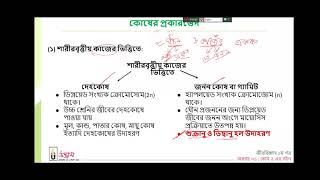 কোষের প্রকারভেদ
(১) শারীরবৃত্তীয় কাজের ভিত্তিতে:
শারীরবৃত্তীয় কাজের
ভিত্তিতে
দেহকোষ
• ডিপ্লয়েড সংখ্যক ক্রোমোসোম(2n)
থাকে।
• উচ্চ শ্রেনির জীবের দেহকোষে
পাওয়া যায়
• মূল, কান্ড, পাতার কোষ, স্নায়ু কোষ
ইত্যাদি দেহকোষের উদাহরণ
জনন কোষ বা গ্যামিট
• হ্যাপ্লয়েড সংখ্যক ক্রোমোজোম (n)
থাকে।
• যৌন প্রজননের জন্য ডিপ্লয়েড
জীবের জনন অংগে মায়োসিস
প্রক্রিয়াতে উতপন্ন হয়।
• শুক্রানু ও ডিম্বানু হল উদাহরণ
উদ্ভাস